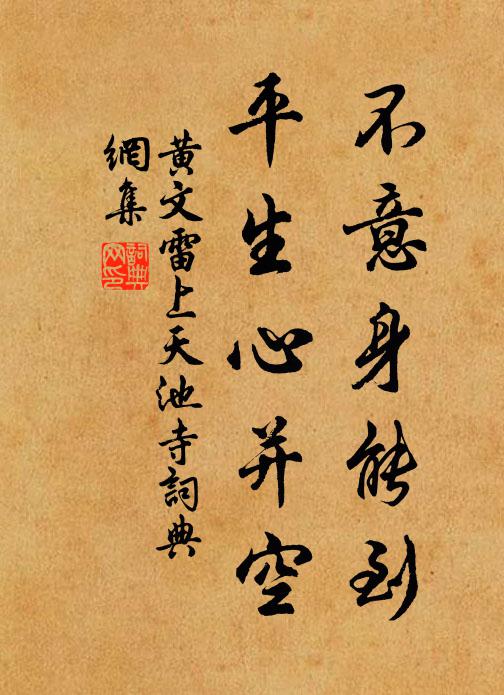 不意身能到
平生心并空
黄文雷上天池寺詞典
網集
詞典
网印